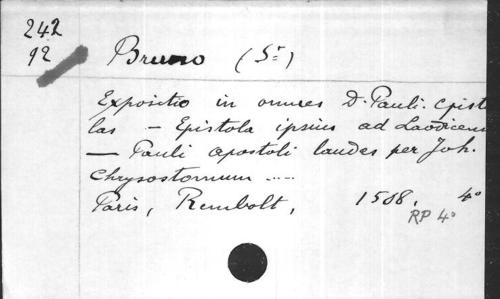 242
92
Bruno (St)
Expositio in omnes D. Pauli. Epist
las — Epistola ipsius ad Laodicens
— Pauli apostoli laudes per Joh.
Chrysostomum .....
Paris, Rembolt, 1508, 4°
RP 4°